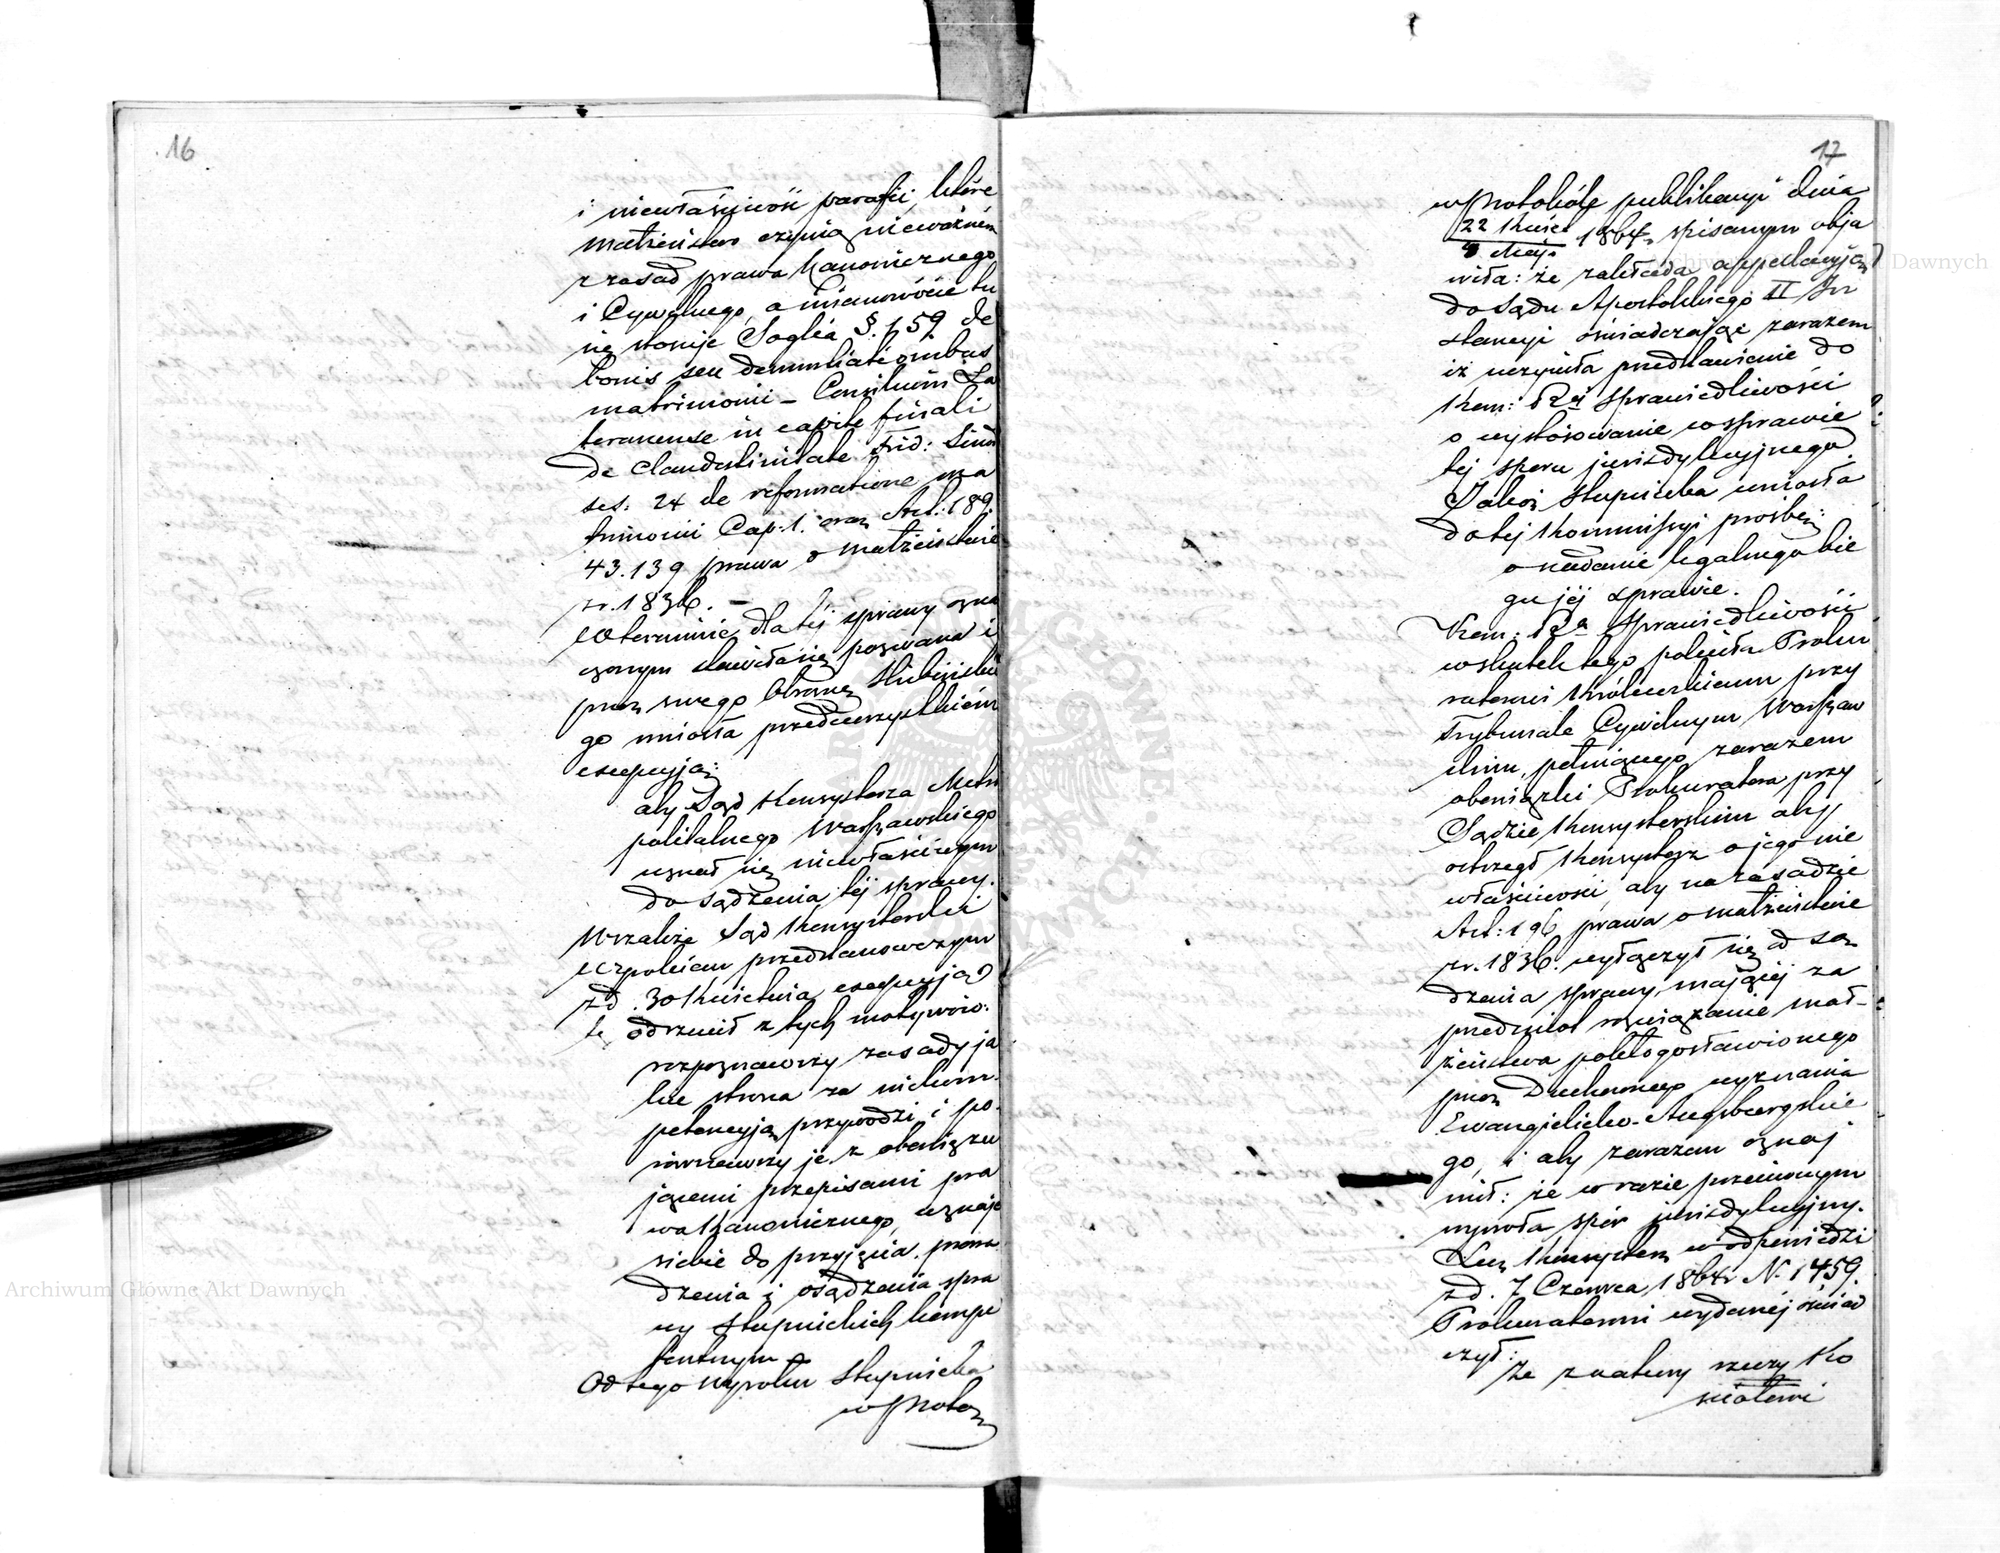 16
i niewłaściwość parafii, które
małżeństwo czynią nieważném
z zasad prawa Kanonicznego
i Cywilnego, a mianowicie tu
się stosuje Soglia §. 159 de
bonis seu denuntiationibus
matrimonii – Concilium La
teranense in capite finali
de Clandestinitate Trid: Sinod
ses: 24 de reformatione ma
trimonii Cap: 1. oraz Art: 189.
43. 139 prawa o małżeństwie
z r. 1836. –
W terminie dla téj sprawy ozna
czonym stawiła się pozwana i
przez swego Obrońcę Słubickie
go wniosła przedewszystkiém
excepcyją:
aby Sąd Konsystorza Metro
politalnego Warszawskiego
uznał się niewłaściwym
do sądzenia téj sprawy.
Wszakże Sąd Konsystorski
Wyrokiem przedstanowczym
z d. 30 Kwietnia excepcyją
tę odrzucił z tych motywów:
rozpoznawszy zasady ja
kie strona za niekom-
petencyją przywodzi, i po-
równawszy je z obowiązu
jącemi przepisami pra
wa Kanonicznego, uznaje
siebie do przyjęcia, prowa
dzenia i osądzenia spra
wy Słupnickich kompe
tentnym
Od tego Wyroku Słupnicka
w Proto
17
w Protokóle publikacyi dnia
22 Kwiet
4 Maja 1864 r. spisanym obja
wiła: że zakłada appellacyją
do Sądu Apostolskiego II In
stancyi oświadczając zarazem
iż uczyniła przedstawienie do
Kom: Rz. Sprawiedliwości
o wystosowanie w sprawie
téj sporu jurisdykcyjnego.
Jakoż Słupnicka wniosła
do téj Kommissyi prośbę:
o nadanie legalnego bie
gu jéj sprawie.
Kom: Rz. Sprawiedliwości
w skutek tego poleciła Proku
ratorowi Królewskiemu przy
Trybunale Cywilnym Warszaw
skim, pełniącego zarazem
obowiązki Prokuratora przy
Sądzie Konsystorskim aby
ostrzegł Konsystorz o jego nie
właściwości, aby na zasadzie
Art: 196 prawa o małżeństwie
z r. 1836. wyłączył się od są
dzenia sprawy, mającéj za
przedmiot rozwiązanie mał-
żeństwa pobłogosławionego
przez Duchownego wyznania
Ewangielicko-Augsburgskie
go, i aby zarazem oznaj
mił: że w razie przeciwnym
wywoła spór jurisdykcyjny.
Lecz Konsystorz w odpowiedzi
z d. 7 Czerwca 1864 r. N. 1459.
Prokuratorowi wydanéj oświad
czył:
że z natury rzeczy Ko
ściołowi
Archiwum Główne Akt Dawnych